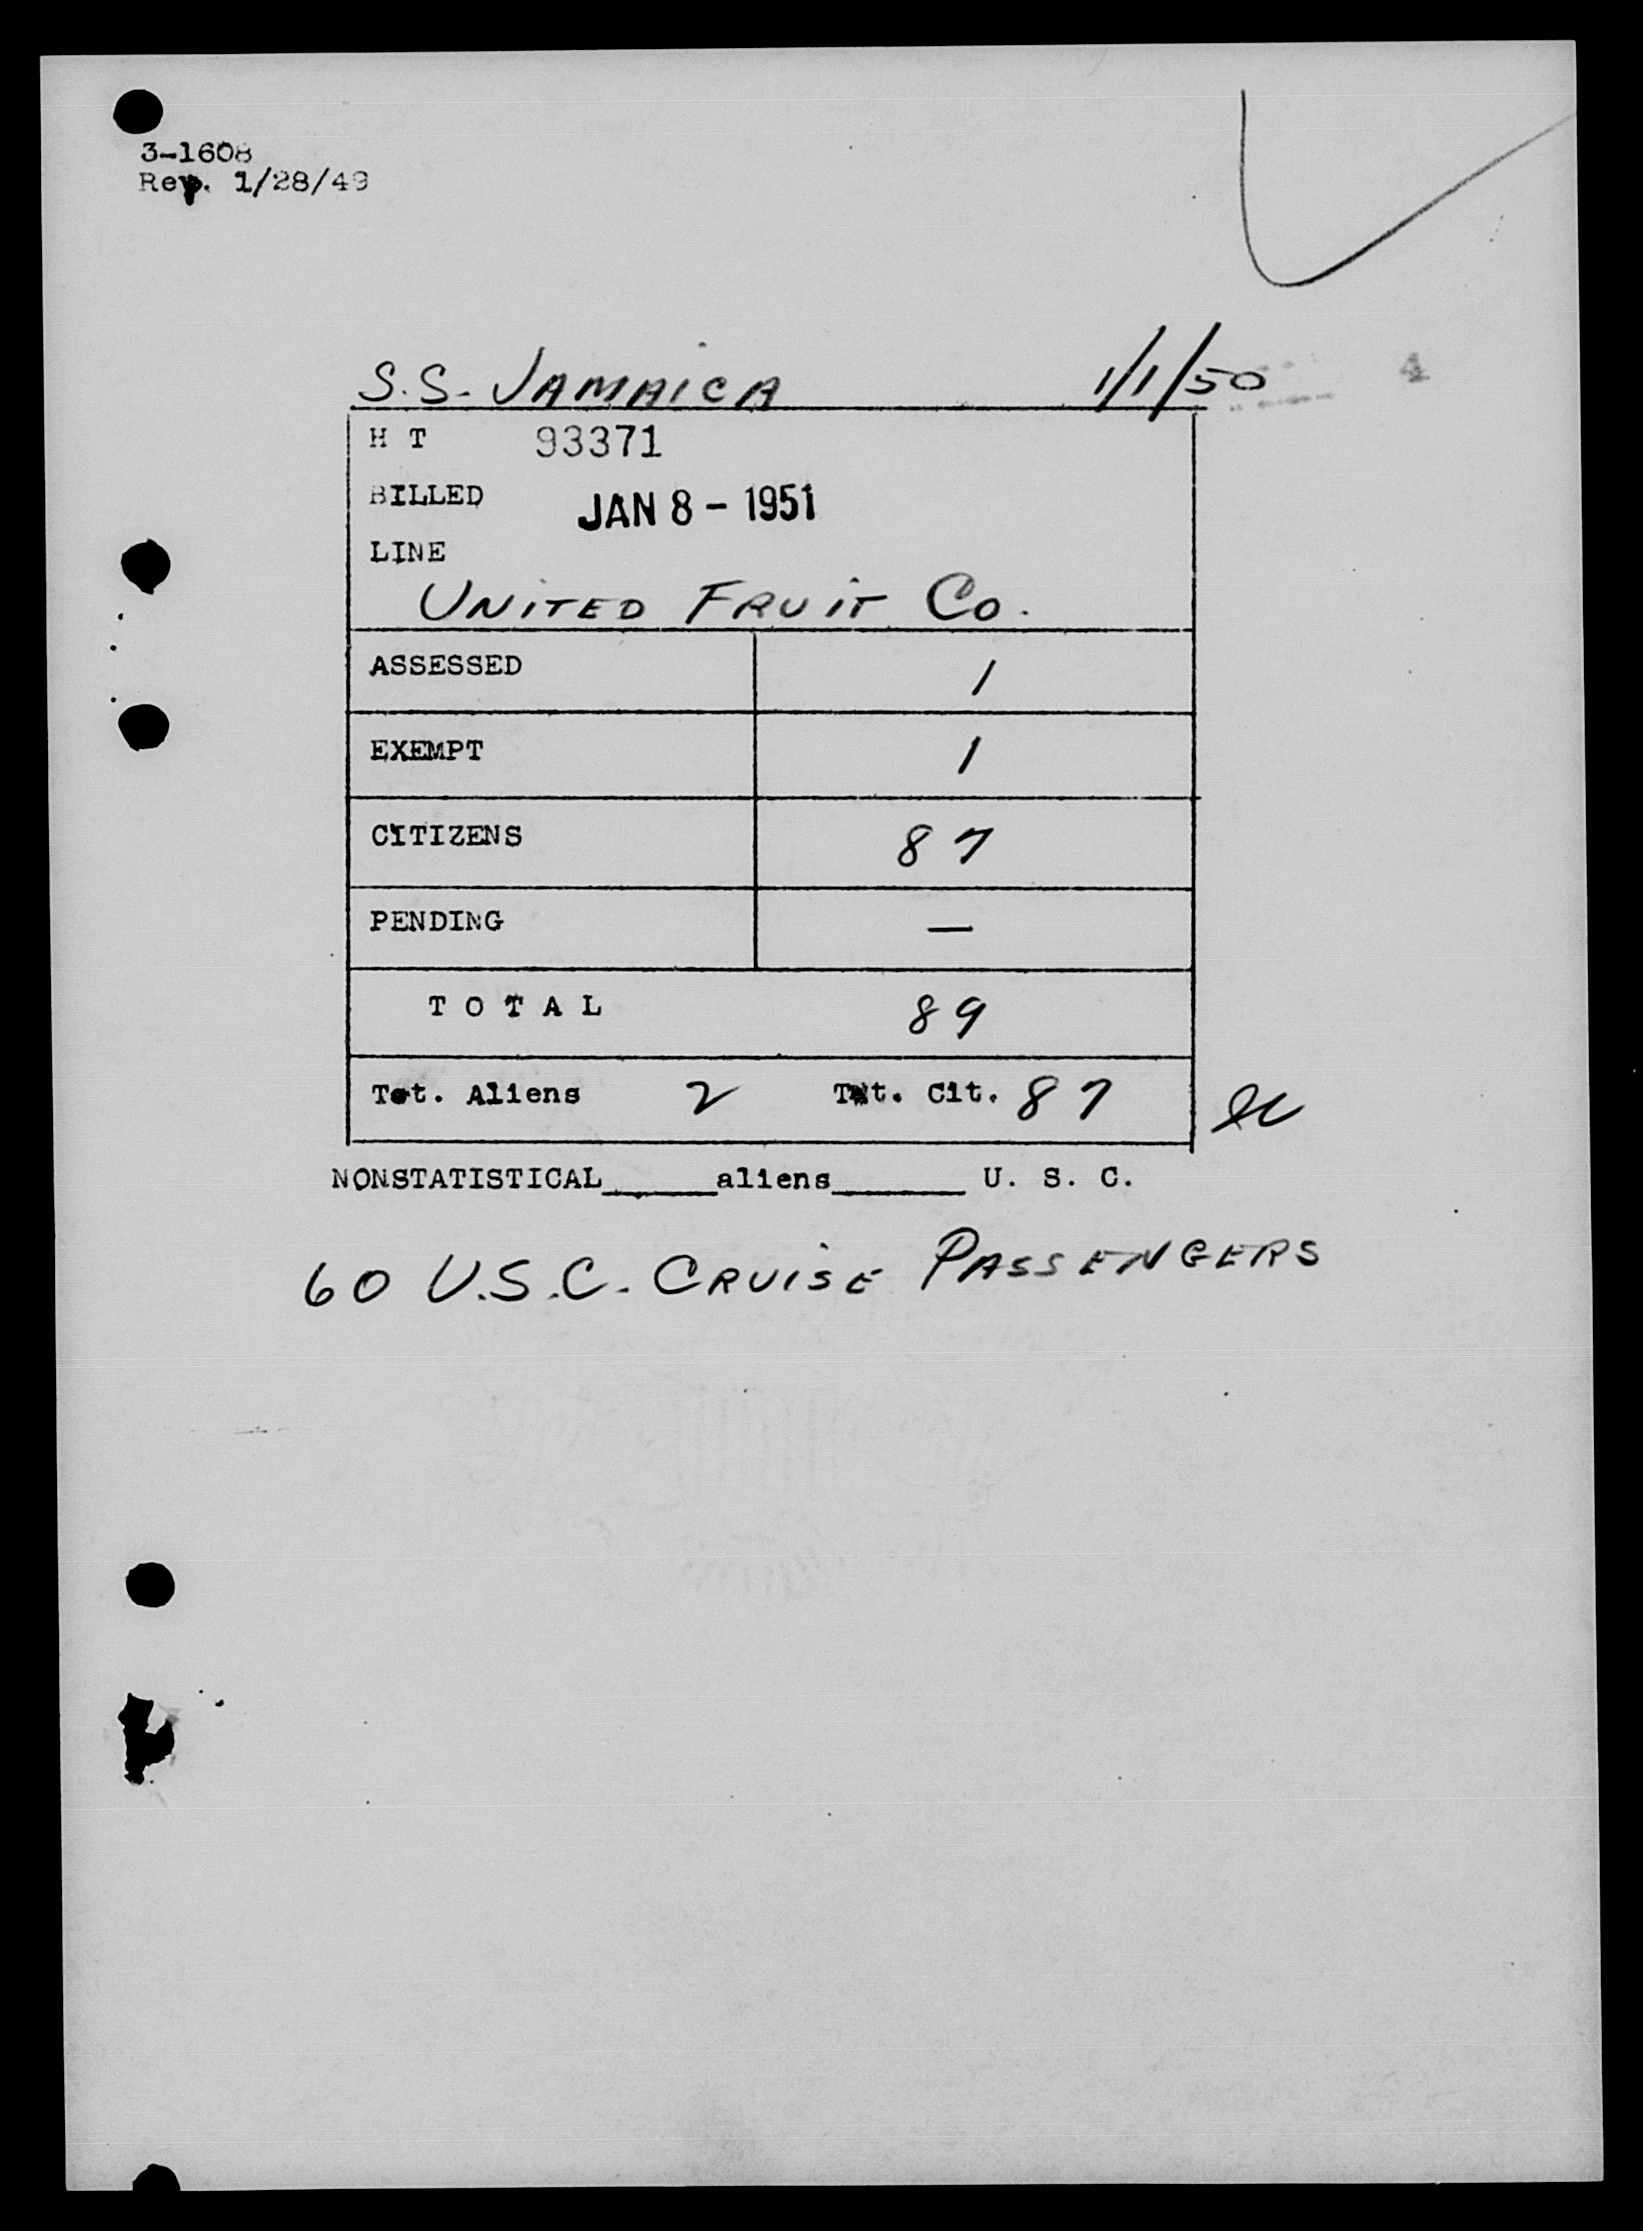 3-1608
Rev. 1/28/49
S.S. JAMAICA 1/1/50 4
H T 93371
BILLED JAN 8 - 1951
LINE
UNITED FRUIT CO.
ASSESSED 1
EXEMPT 1
CITIZENS 87
PENDING —
T O T A L 89
Tot. Aliens 2 Tot. Cit. 87
NONSTATISTICAL______aliens_______ U. S. C.
60 U.S.C. CRUISE PASSENGERS